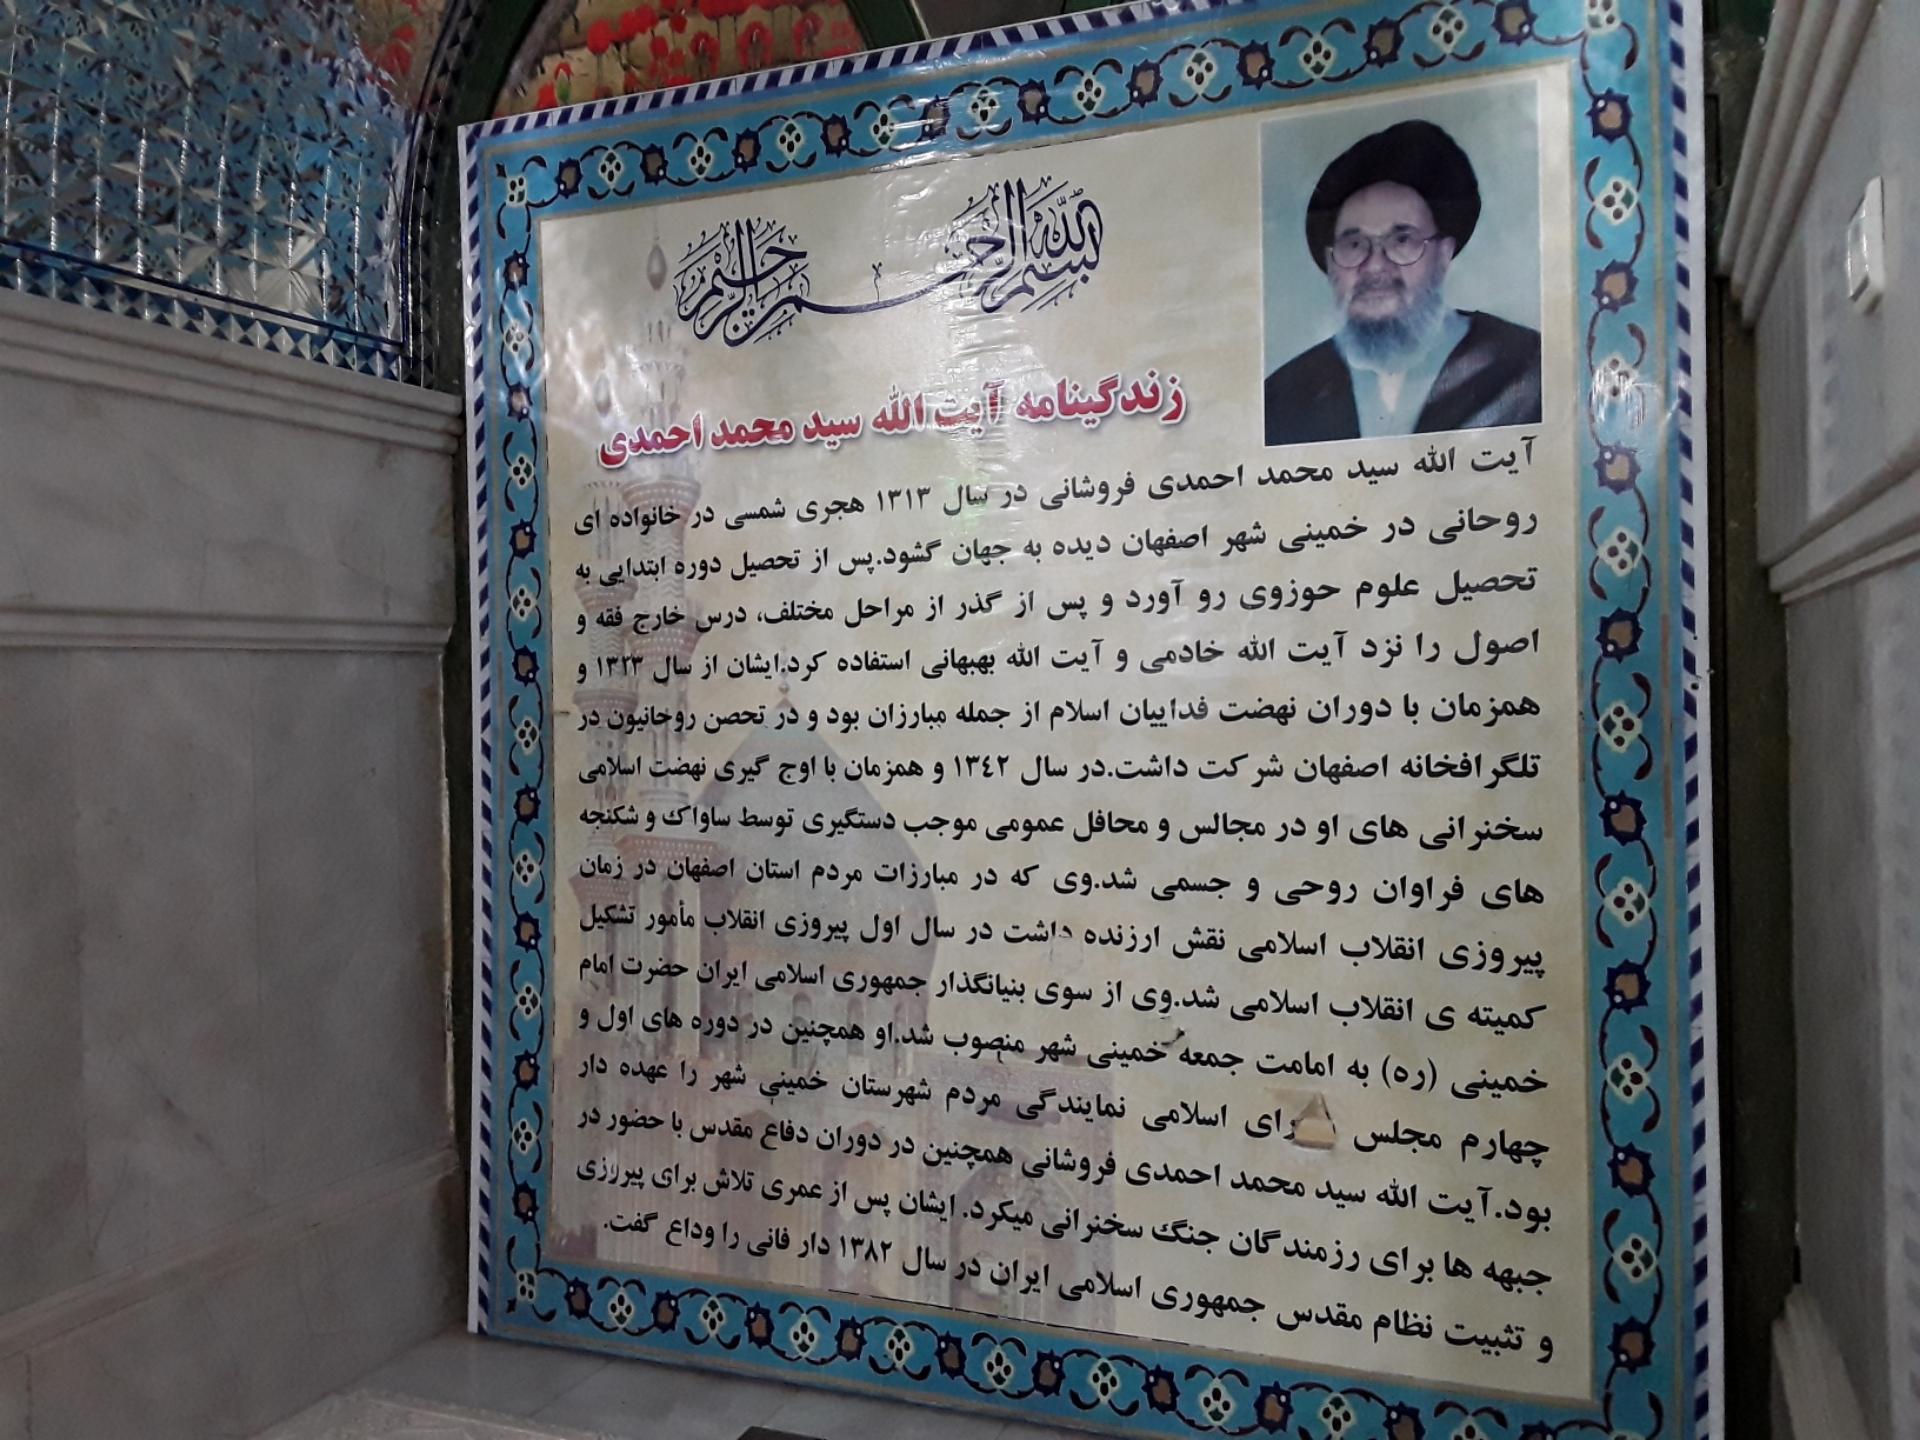 بسم الله الرحمن الرحیم
زندگینامه آیت الله سید محمد احمدی
آیت الله سید محمد احمدی فروشانی در سال ۱۳۱۳ هجری شمسی در خانواده ای
روحانی در خمینی شهر اصفهان دیده به جهان گشود.پس از تحصیل دوره ابتدایی به
تحصیل علوم حوزوی رو آورد و پس از گذر از مراحل مختلف، درس خارج فقه و
اصول را نزد آیت الله خادمی و آیت الله بهبهانی استفاده کرد.ایشان از سال ۱۳۲۳ و
همزمان با دوران نهضت فداییان اسلام از جمله مبارزان بود و در تحصن روحانیون در
تلگرافخانه اصفهان شرکت داشت.در سال ۱۳٤۲ و همزمان با اوج گیری نهضت اسلامی
سخنرانی های او در مجالس و محافل عمومی موجب دستگیری توسط ساواک و شکنجه
های فراوان روحی و جسمی شد.وی که در مبارزات مردم استان اصفهان در زمان
پیروزی انقلاب اسلامی نقش ارزنده داشت در سال اول پیروزی انقلاب مأمور تشکیل
کمیته ی انقلاب اسلامی شد.وی از سوی بنیانگذار جمهوری اسلامی ایران حضرت امام
خمینی (ره) به امامت جمعه خمینی شهر منصوب شد.او همچنین در دوره های اول و
چهارم مجلس رای اسلامی نمایندگی مردم شهرستان خمینی شهر را عهده دار
بود.آیت الله سید محمد احمدی فروشانی همچنین در دوران دفاع مقدس با حضور در
جبهه ها برای رزمندگان جنگ سخنرانی میکرد. ایشان پس از عمری تلاش برای پیروزی
و تثبیت نظام مقدس جمهوری اسلامی ایران در سال ۱۳۸۲ دار فانی را وداع گفت.